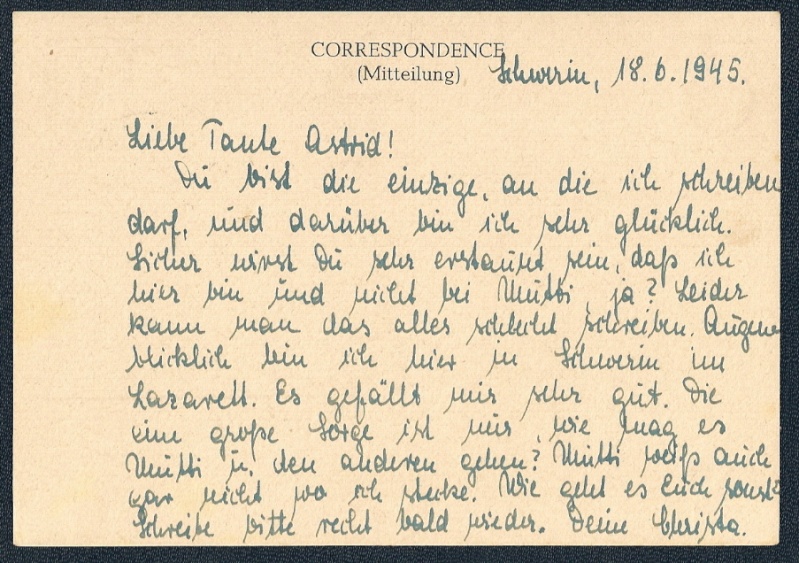 CORRESPONDENCE
(Mitteilung)
Schwerin, 18.6.1945.
Liebe Tante Astrid!
Du bist die einzige, an die ich schreiben
darf, und darüber bin ich sehr glücklich.
Sicher wirst Du sehr erstaunt sein, daß ich
hier bin und nicht bei Mutti, ja? Leider
kann man das alles schlecht schreiben. Augen-
blicklich bin ich hier in Schwerin im
Lazarett. Es gefällt mir sehr gut. Die
eine große Sorge ist nur, wie mag es
Mutti u. den anderen gehen? Mutti weiß auch
gar nicht wo ich stecke. Wie geht es Euch sonst?
Schreibe bitte recht bald wieder. Deine Christa.